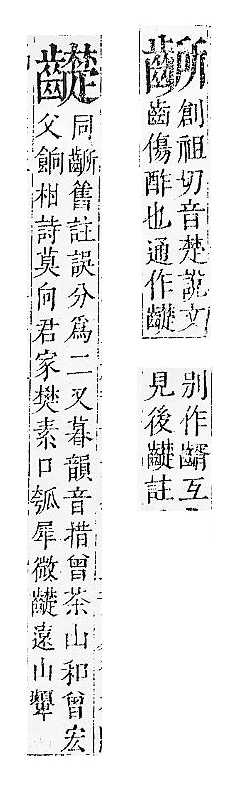 齭
創祖切音楚說文
齒傷酢也通作齼
別作互
見後齼註
齼
同齭舊註誤分爲二又暮韻音措曾茶山和曾宏
父餉柑詩莫向君家樊素口瓠犀微齼遠山顰